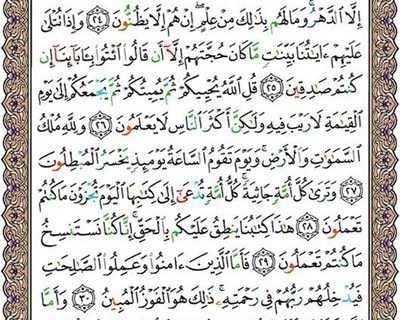 إِلَّا ٱلدَّهْرُ ۚ وَمَا لَهُم بِذَٰلِكَ مِنْ عِلْمٍ ۖ إِنْ هُمْ إِلَّا يَظُنُّونَ ﴿٢٤﴾ وَإِذَا تُتْلَىٰ
عَلَيْهِمْ ءَايَٰتُنَا بَيِّنَٰتٍ مَّا كَانَ حُجَّتَهُمْ إِلَّآ أَن قَالُوا۟ ٱئْتُوا۟ بِـَٔابَآئِنَآ إِن
كُنتُمْ صَٰدِقِينَ ﴿٢٥﴾ قُلِ ٱللَّهُ يُحْيِيكُمْ ثُمَّ يُمِيتُكُمْ ثُمَّ يَجْمَعُكُمْ إِلَىٰ يَوْمِ
ٱلْقِيَٰمَةِ لَا رَيْبَ فِيهِ وَلَٰكِنَّ أَكْثَرَ ٱلنَّاسِ لَا يَعْلَمُونَ ﴿٢٦﴾ وَلِلَّهِ مُلْكُ
ٱلسَّمَٰوَٰتِ وَٱلْأَرْضِ ۚ وَيَوْمَ تَقُومُ ٱلسَّاعَةُ يَوْمَئِذٍ يَخْسَرُ ٱلْمُبْطِلُونَ
﴿٢٧﴾ وَتَرَىٰ كُلَّ أُمَّةٍ جَاثِيَةً ۚ كُلُّ أُمَّةٍ تُدْعَىٰٓ إِلَىٰ كِتَٰبِهَا ٱلْيَوْمَ تُجْزَوْنَ مَا كُنتُمْ
تَعْمَلُونَ ﴿٢٨﴾ هَٰذَا كِتَٰبُنَا يَنطِقُ عَلَيْكُم بِٱلْحَقِّ ۚ إِنَّا كُنَّا نَسْتَنسِخُ
مَا كُنتُمْ تَعْمَلُونَ ﴿٢٩﴾ فَأَمَّا ٱلَّذِينَ ءَامَنُوا۟ وَعَمِلُوا۟ ٱلصَّٰلِحَٰتِ
فَيُدْخِلُهُمْ رَبُّهُمْ فِى رَحْمَتِهِۦ ۚ ذَٰلِكَ هُوَ ٱلْفَوْزُ ٱلْمُبِينُ ﴿٣٠﴾ وَأَمَّا